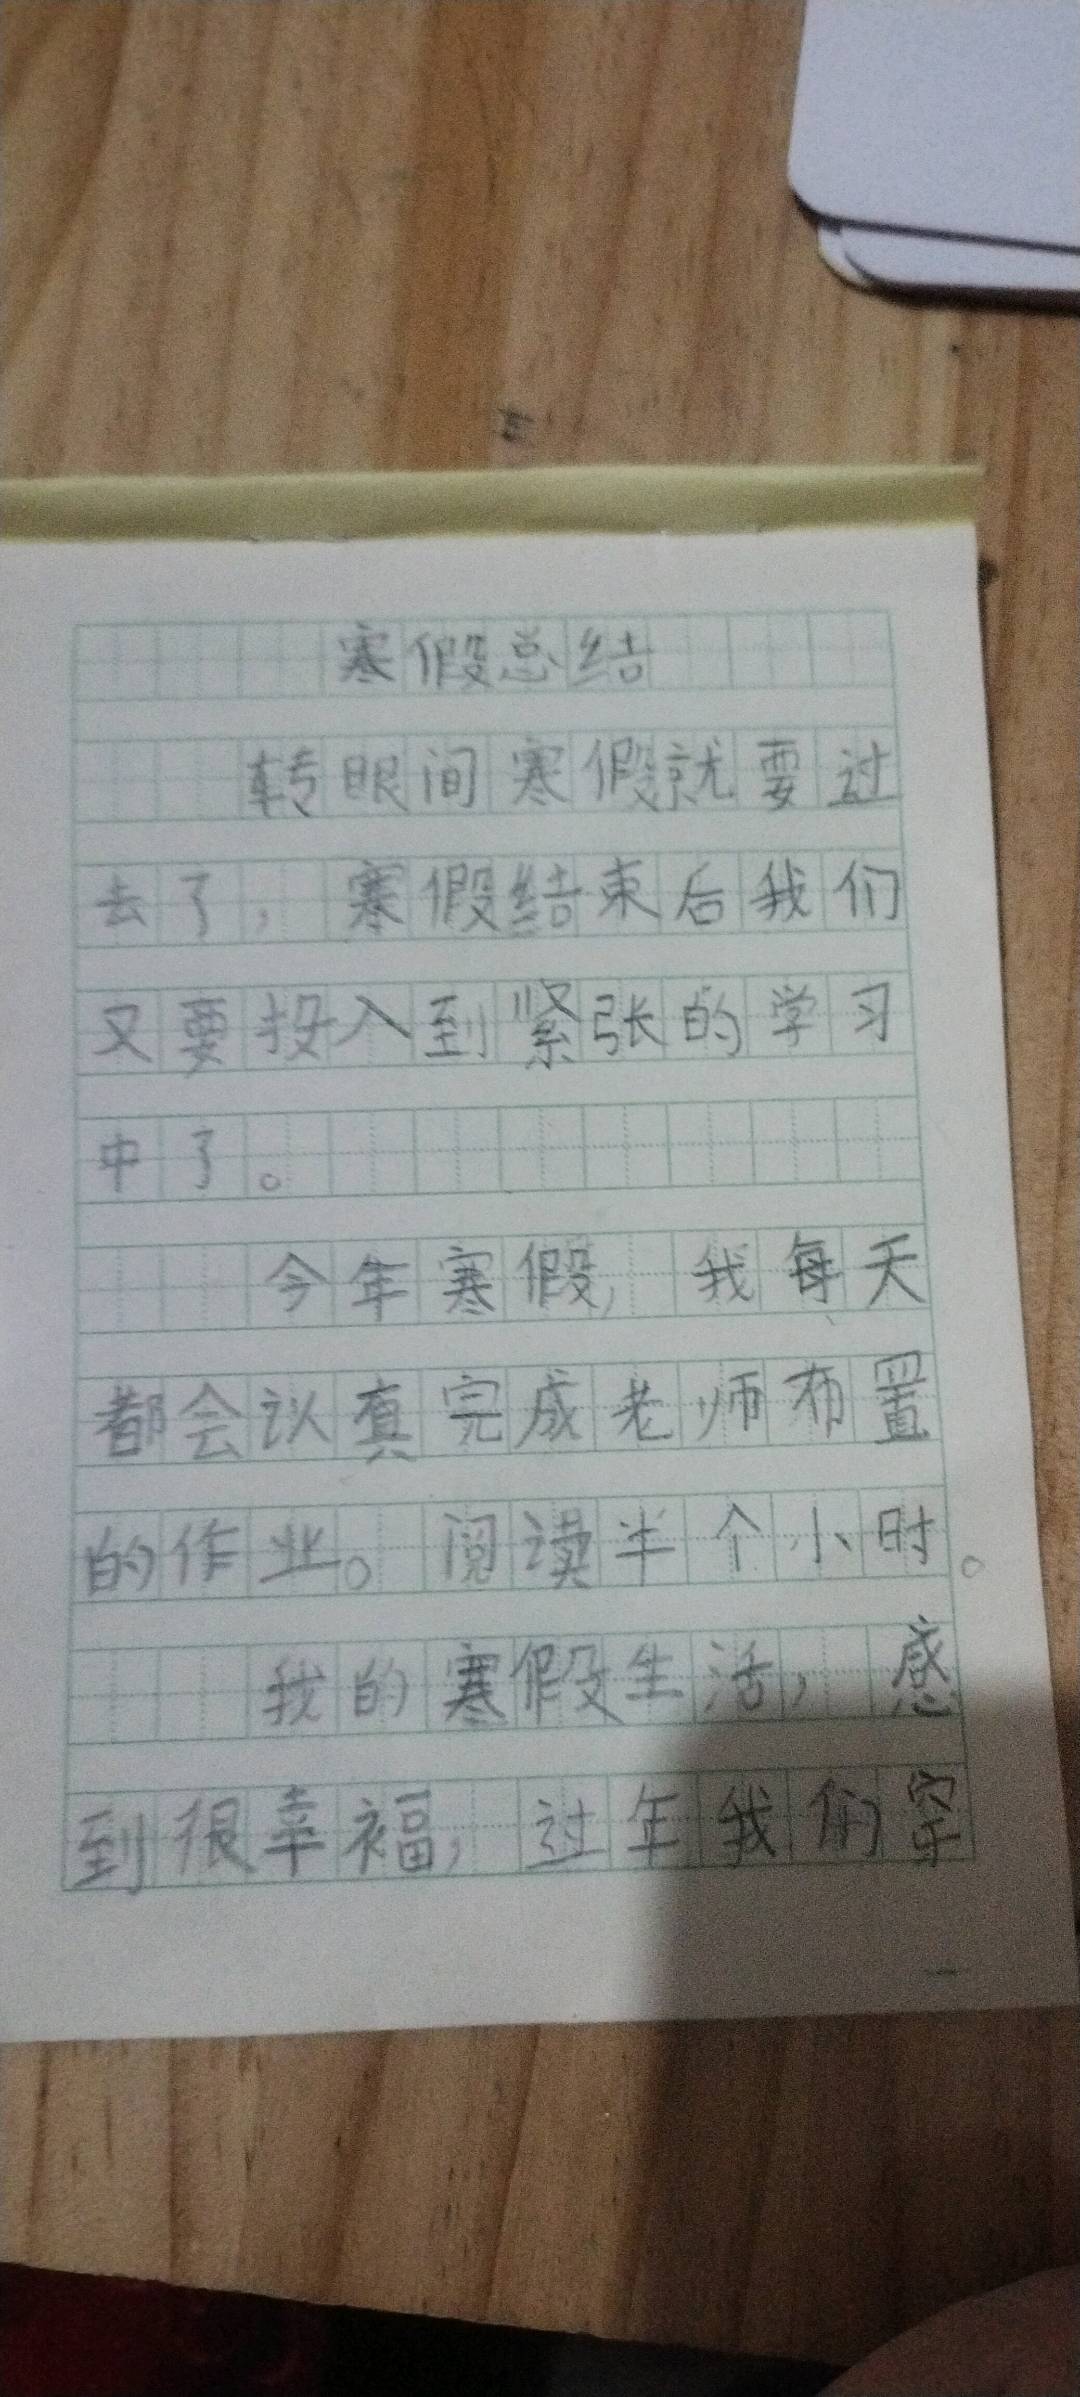 寒假总结
转眼间寒假就要过
去了，寒假结束后我们
又要投入到紧张的学习
中了。
今年寒假，我每天
都会认真完成老师布置
的作业。阅读半个小时。
我的寒假生活，感
到很幸福，过年我们穿